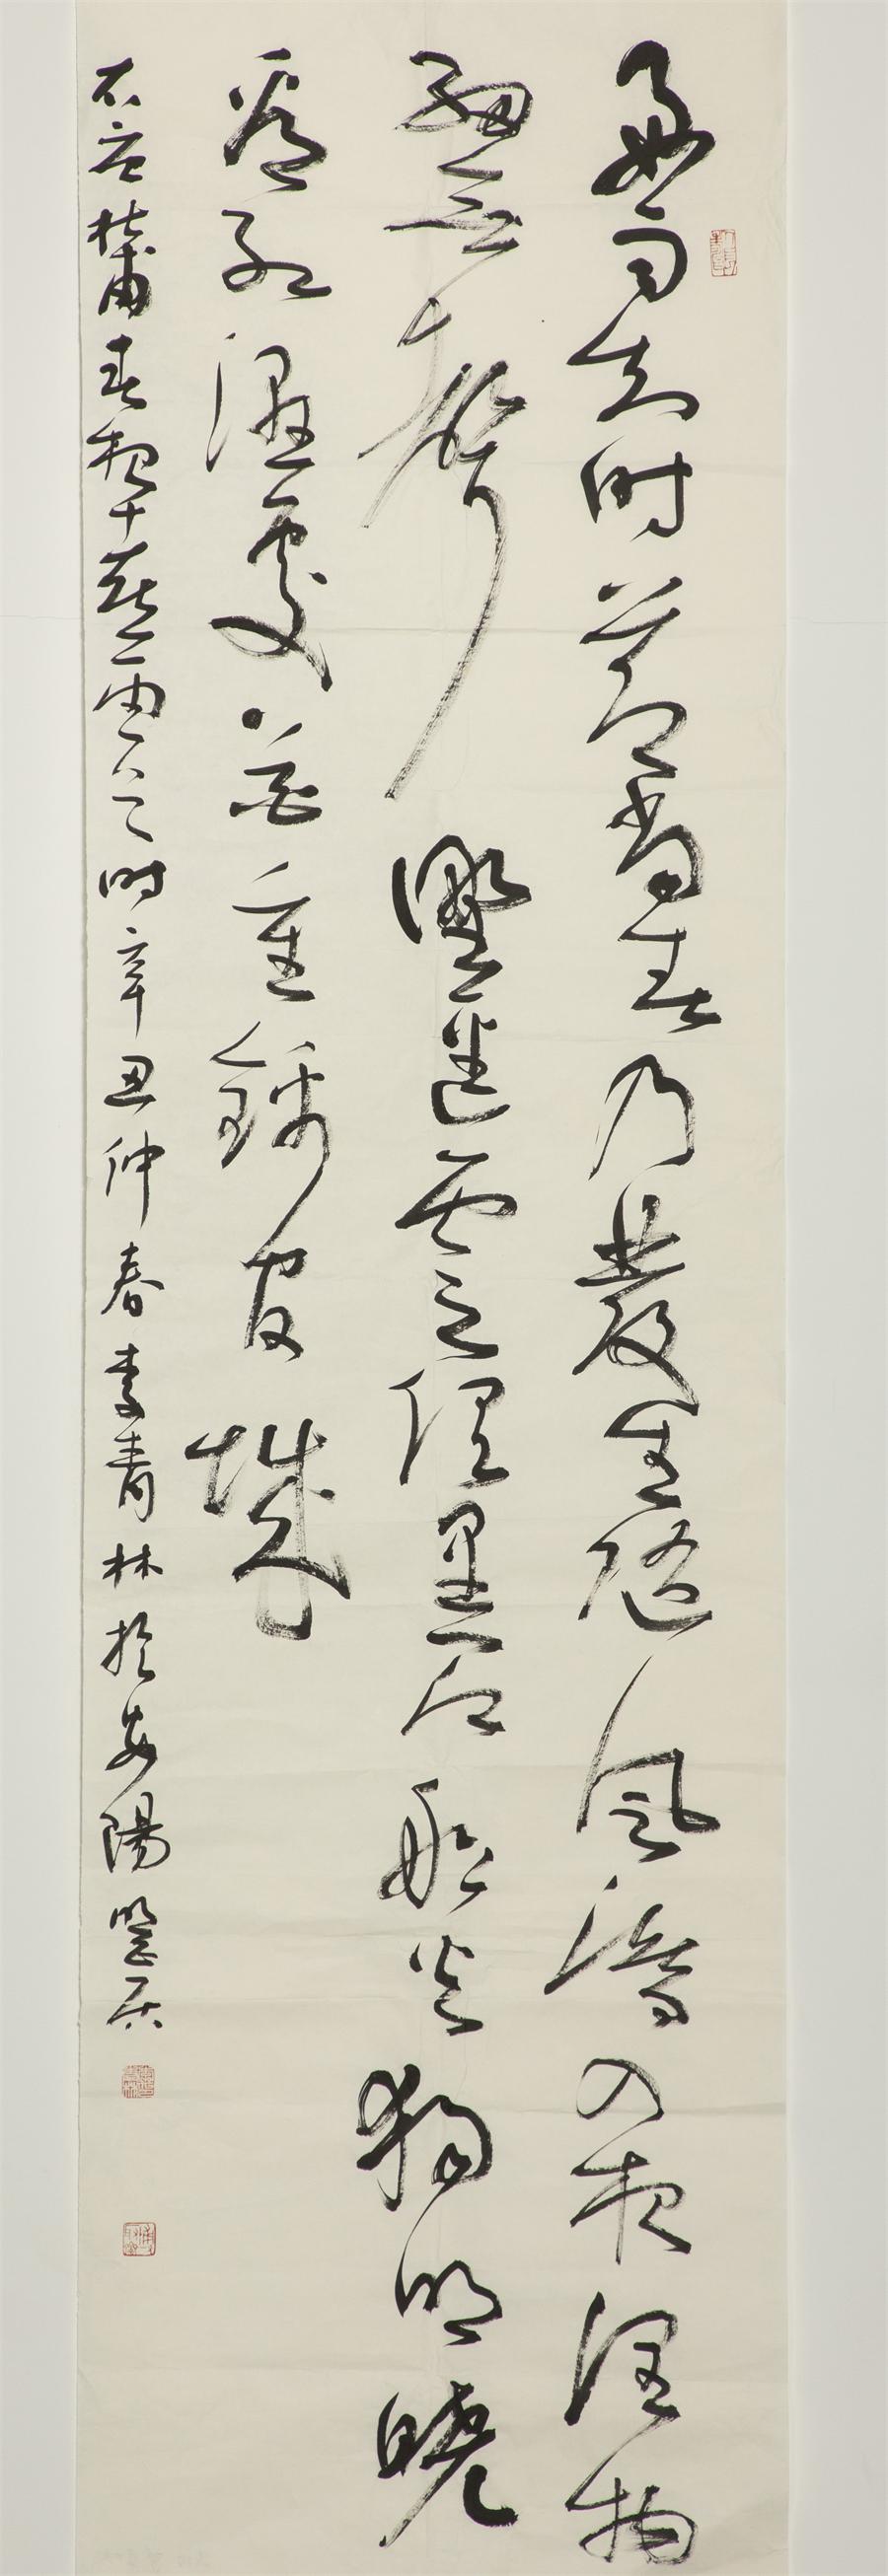 好雨知时節當春乃發生隨風潛入夜潤物
細無聲野逕雲俱黑江船火獨明曉
看紅濕處花重錦官城
右杜甫春夜喜雨之时辛丑仲春李青林於安陽居